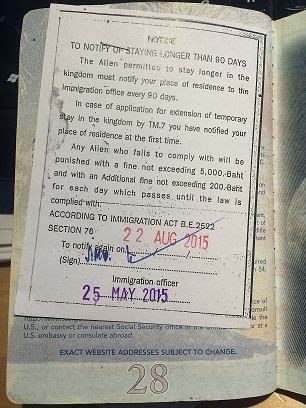 NOTICE
TO NOTIFY OF STAYING LONGER THAN 90 DAYS
The Alien permitted to stay longer in the
kingdom must notify your place of residence to the
immigration office every 90 days.
In case of application for extension of temporary
stay in the kingdom by TM.7 you have notified your
place of residence at the first time.
Any Alien who fails to comply with will be
punished with a fine not exceeding 5,000.-Baht
and with an Additional fine not exceeding 200.-Baht
for each day which passes until the law is
complied with.
ACCORDING TO IMMIGRATION ACT B.E.2522
SECTION 76
To notify again on 22 AUG 2015
(Sign)
Immigration officer
25 MAY 2015
U.S., or contact the nearest Social Security office in the
U.S. embassy or consulate abroad.
EXACT WEBSITE ADDRESSES SUBJECT TO CHANGE.
28